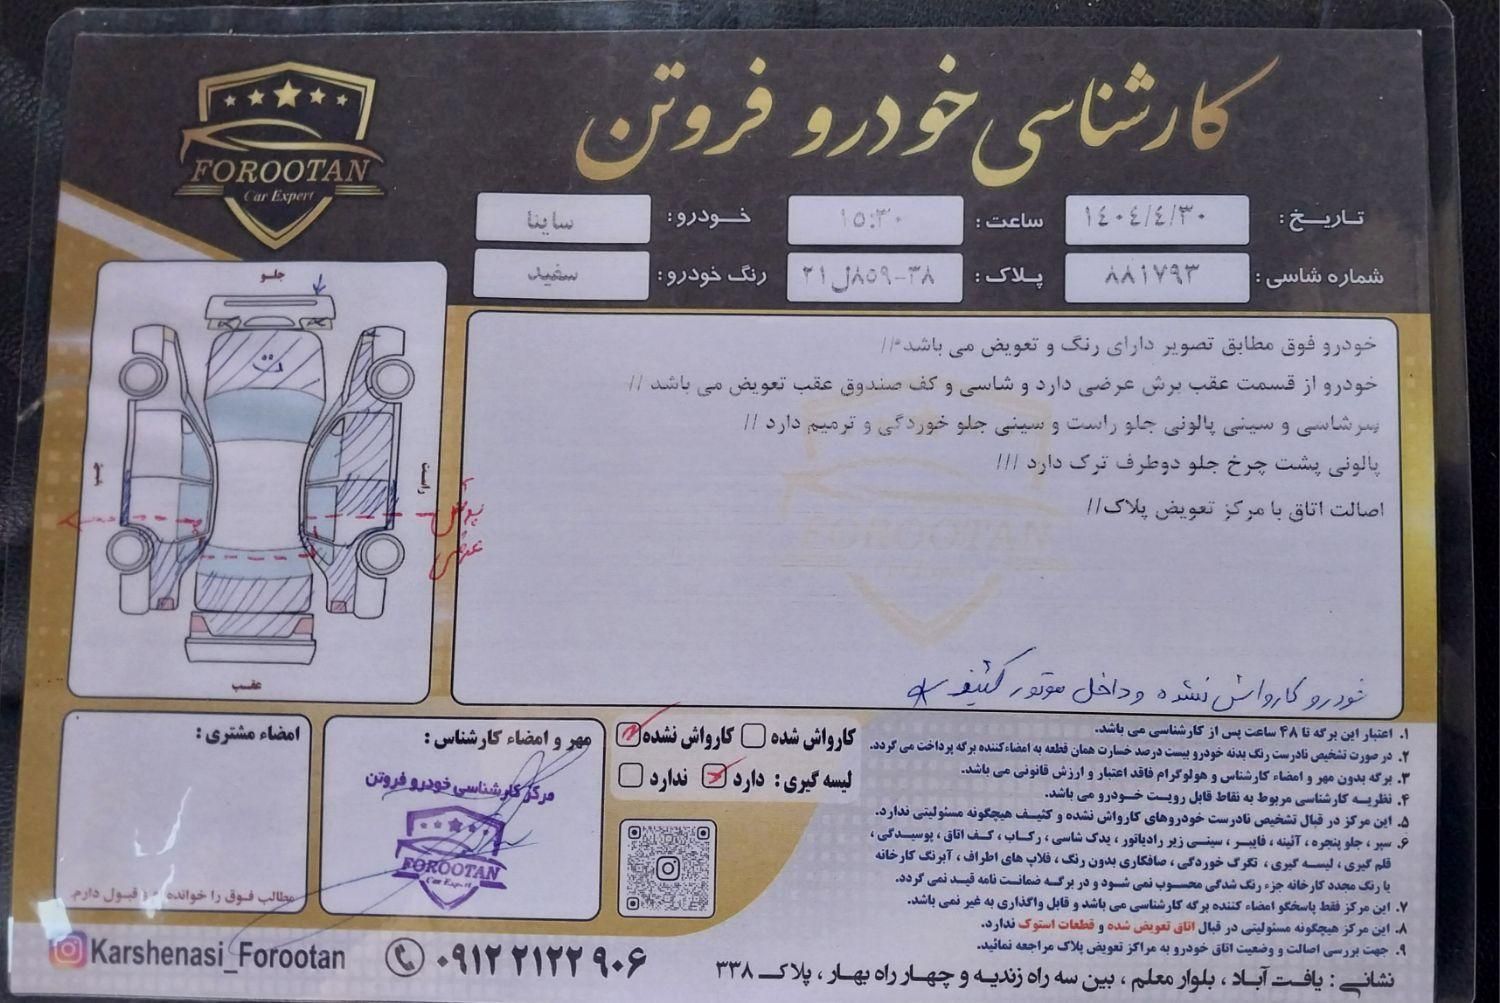 کارشناسی خودرو فروتن
FOROOTAN
Car Expert
تاریخ : ۱۴۰۴/۴/۳۰
ساعت : ۱۵:۳۰
خودرو : ساینا
شماره شاسی : ۸۸۱۷۹۳
پلاک : ۳۸-۸۵۹ل۲۱
رنگ خودرو : سفید
جلو
ت
چپ
راست
برش
عرضی
عقب
خودرو فوق مطابق تصویر دارای رنگ و تعویض می باشد//
خودرو از قسمت عقب برش عرضی دارد و شاسی و کف صندوق عقب تعویض می باشد //
سرشاسی و سینی پالونی جلو راست و سینی جلو خوردگی و ترمیم دارد //
پالونی پشت چرخ جلو دوطرف ترک دارد ///
اصالت اتاق با مرکز تعویض پلاک//
FOROOTAN
خودرو کارواش نشده و داخل موتور کثیف
امضاء مشتری :
مطالب فوق را خوانده و قبول دارم.
مهر و امضاء کارشناس :
مرکز کارشناسی خودرو فروتن
FOROOTAN
Car Expert
کارواش شده کارواش نشده
لیسه گیری : دارد ندارد
۱. اعتبار این برگه تا ۴۸ ساعت پس از کارشناسی می باشد.
۲. در صورت تشخیص نادرست رنگ بدنه خودرو بیست درصد خسارت همان قطعه به امضاءکننده برگه پرداخت می گردد.
۳. برگه بدون مهر و امضاء کارشناس و هولوگرام فاقد اعتبار و ارزش قانونی می باشد.
۴. نظریه کارشناسی مربوط به نقاط قابل رویت خودرو می باشد.
۵. این مرکز در قبال تشخیص نادرست خودروهای کارواش نشده و کثیف هیچگونه مسئولیتی ندارد.
۶. سپر ، جلو پنجره ، آئینه ، فایبر ، سینی زیر رادیاتور ، یدک شاسی ، رکاب ، کف اتاق ، پوسیدگی ،
قلم گیری ، لیسه گیری ، تگرگ خوردگی ، صافکاری بدون رنگ ، قلاب های اطراف ، آبرنگ کارخانه
یا رنگ مجدد کارخانه جزء رنگ شدگی محسوب نمی شود و در برگه ضمانت نامه قید نمی گردد.
۷. این مرکز فقط پاسخگو امضاء کننده برگه کارشناسی می باشد و قابل واگذاری به غیر نمی باشد.
۸. این مرکز هیچگونه مسئولیتی در قبال اتاق تعویض شده و قطعات استوک ندارد.
۹. جهت بررسی اصالت و وضعیت اتاق خودرو به مراکز تعویض پلاک مراجعه نمائید.
Karshenasi_Forootan
۰۹۱۲ ۲۱۲۲ ۹۰۶
نشانی : یافت آباد ، بلوار معلم ، بین سه راه زندیه و چهار راه بهار ، پلاک ۳۳۸